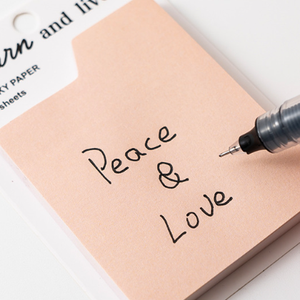 and live
PAPER
sheets
Peace
&
Love